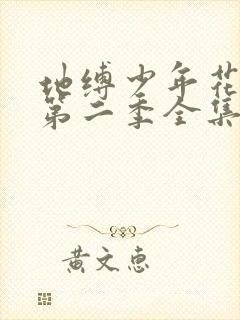 地缚少年花
第二季全集
黄文惠